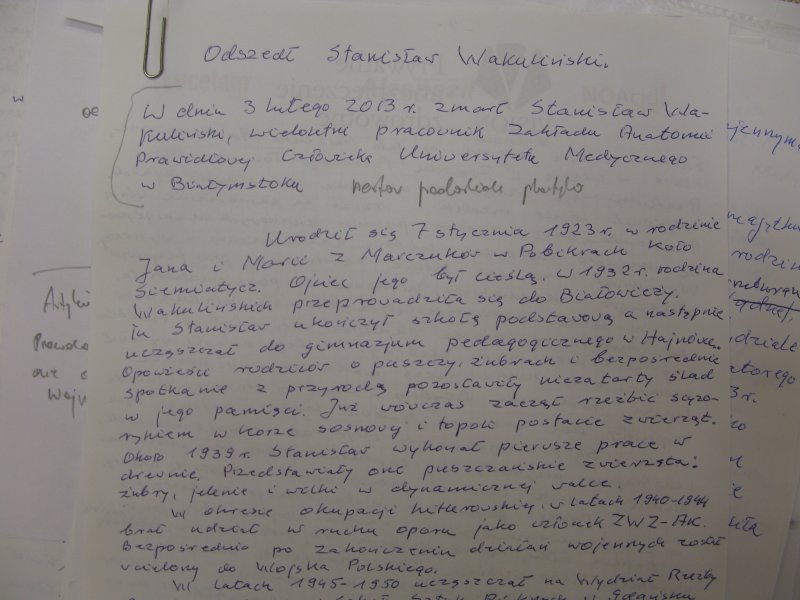 Odszedł Stanisław Wakuliński.
W dniu 3 lutego 2013 r. zmarł Stanisław Wa-
kuliński, wieloletni pracownik Zakładu Anatomii
Prawidłowej Człowieka Uniwersytetu Medycznego
w Białymstoku nestor podlaskich
Urodził się 7 stycznia 1923 r. w rodzinie
Jana i Marii z Marczuków w Pobikrach koło
Siemiatycz. Ojciec jego był cieślą. W 1932 r. rodzina
Wakulińskich przeprowadziła się do Białowieży.
Tu Stanisław ukończył szkołę podstawową a następnie
uczęszczał do gimnazjum pedagogicznego w Hajnówce.
Opowieści rodziców o puszczy, żubrach i bezpośrednie
spotkanie z przyrodą pozostawiły niezatarty ślad
w jego pamięci. Już wówczas zaczął rzeźbić scyzo-
rykiem w korze sosnowej i topoli postacie zwierząt.
Około 1939 r. Stanisław wykonał pierwsze prace w
drewnie. Przedstawiały one puszczańskie zwierzęta:
żubry, jelenie i wilki w dynamicznej walce.
W okresie okupacji hitlerowskiej, w latach 1940-1944
brał udział w ruchu oporu jako członek ZWZ-AK.
Bezpośrednio po zakończeniu działań wojennych został
wcielony do Wojska Polskiego.
W latach 1945-1950 uczęszczał na Wydział Rzeźby
Sztuk Pięknych w Gdańsku